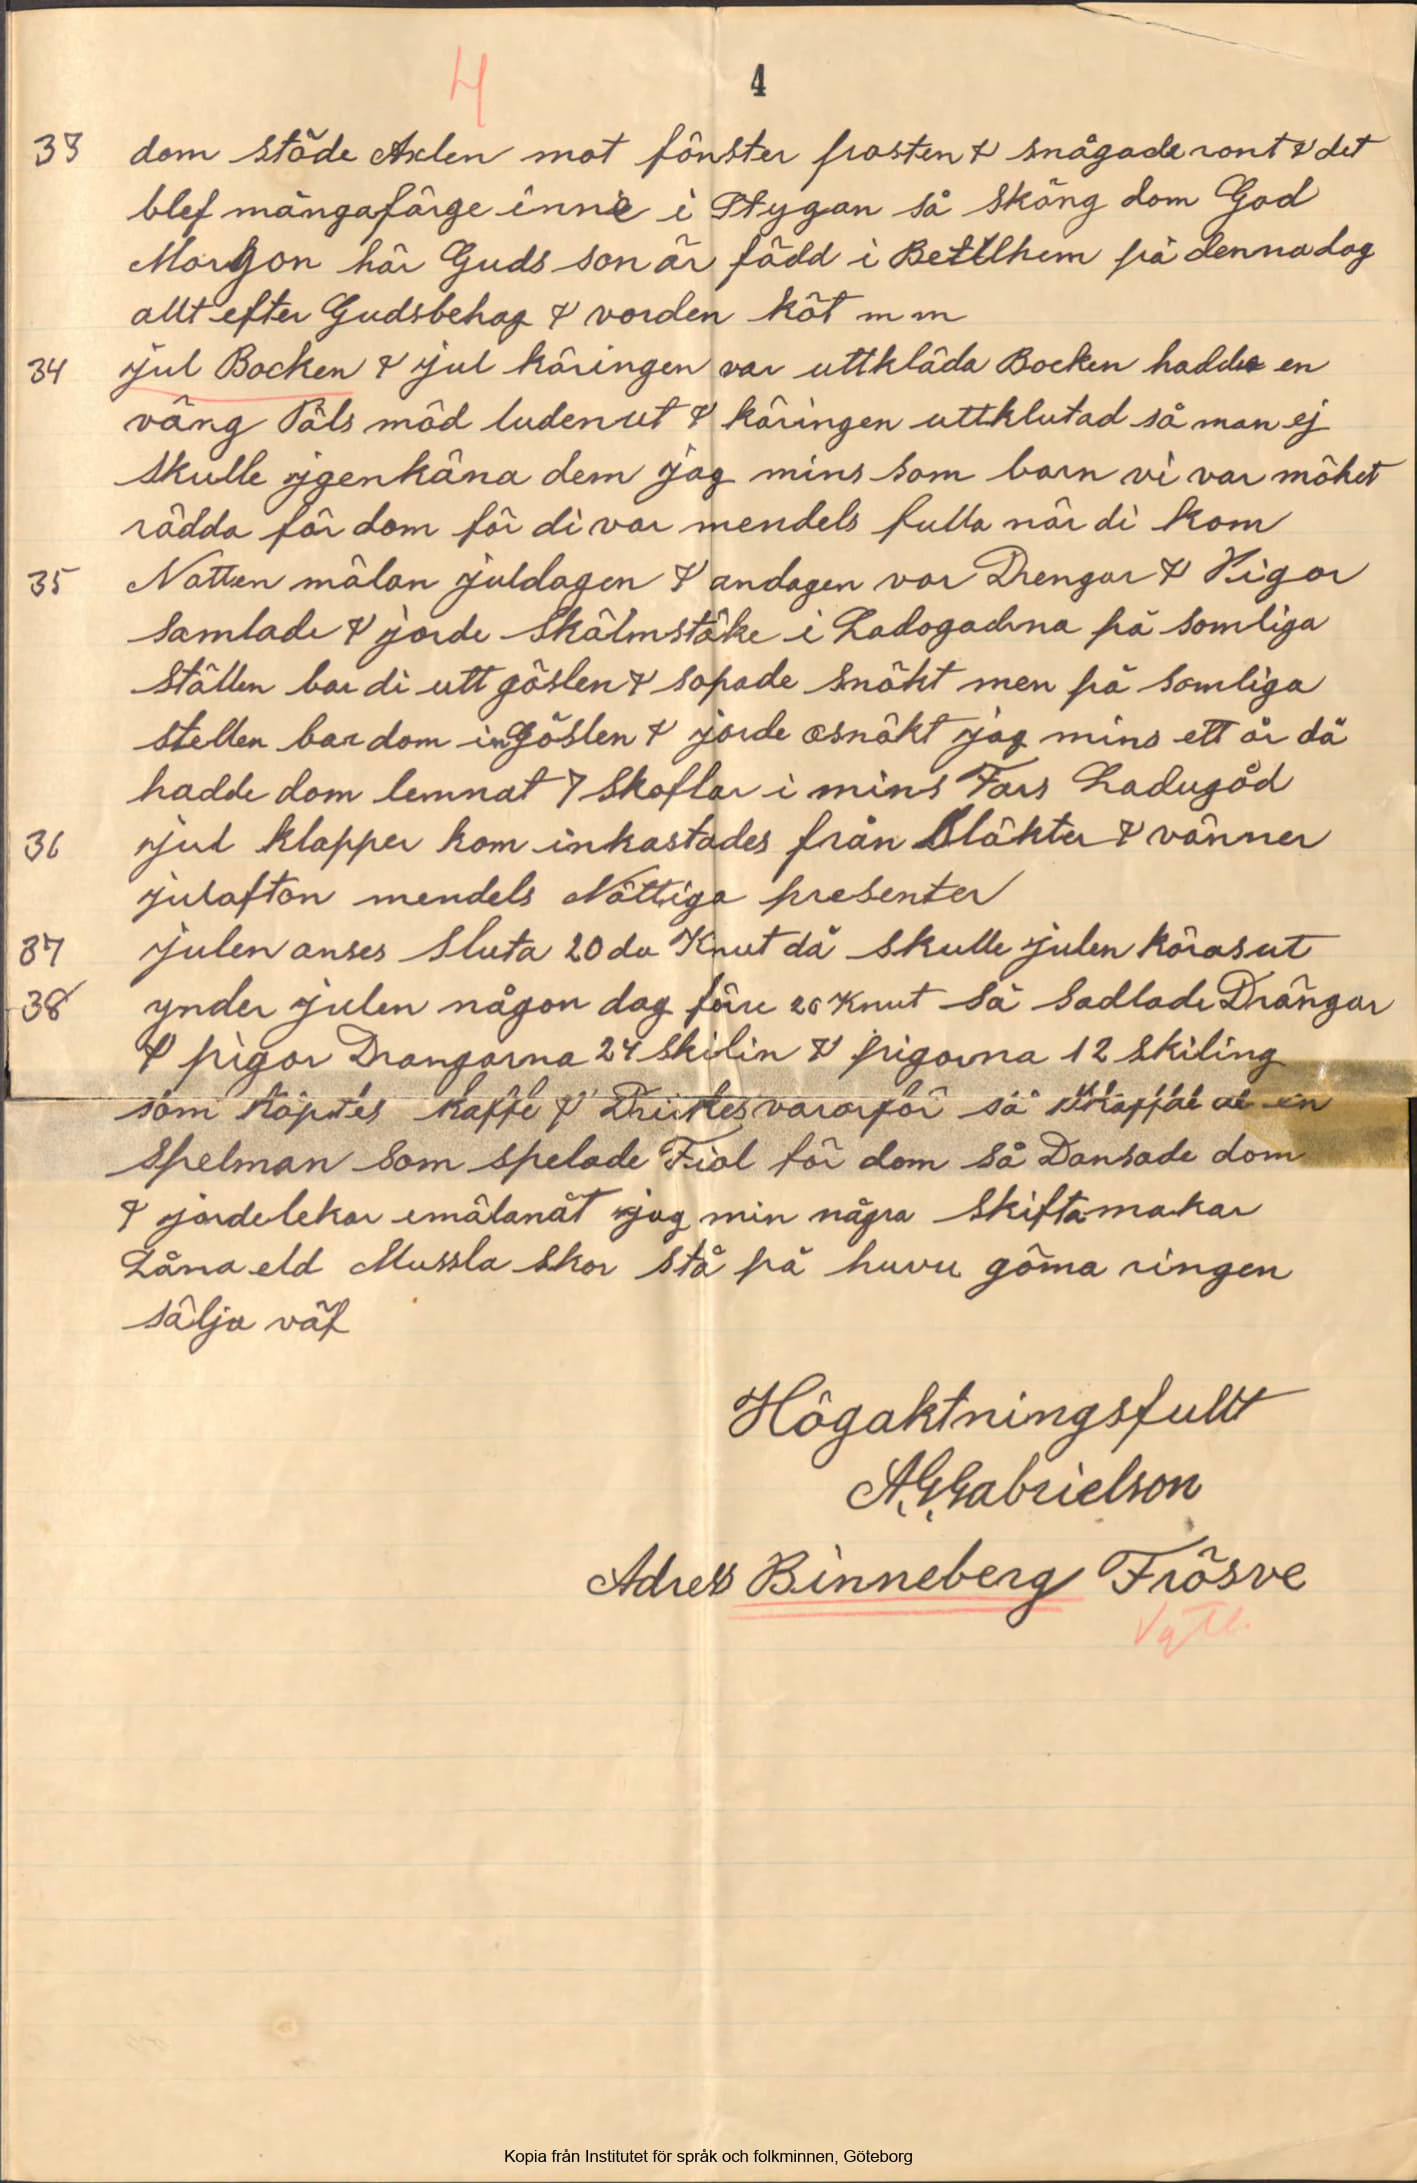 4 4
33 dom stöde Axlen mot fönster prosten & snågade ront & det
blef mångafärge inne i Stygan så sköng dom God
Morgon här Guds son är född i Bettlhem på denna dag
allt efter Gudsbehag & vorden köt m m
34 jul Bocken & jul käringen var uttkläda Bocken hadde en
väng Päls mäd ludenut & käringen uttklutad så man ej
skulle igenkäna dem jag mins som barn vi var möket
rädda för dom för di var mendels fulla när di kom
35 Natten mälan juldagen & andagen var Drengar & Pigor
samlade & jorde skälmstöke i Ladogadna på somliga
ställen bar di utt göslen & sopade snökt men på somliga
stellen bar dom in göslen & jorde osnökt jag mins ett år då
hadde dom lemnat 7 skoflar i mins Fars Ladugåd
36 jul klapper kom inkastades från Släkter & vänner
julafton mendels Nöttiga presenter
37 julen anses sluta 20 da Knut då skulle julen körasut
38 ynder julen någon dag före 20 Knut så sadlade Drängar
& pigor Drangarna 24 skilin & pigorna 12 skiling
som köptes kaffe & vararför så en
spelman som spelade Fiol för dom så Dansade dom
& jordelekar emälanåt jag min några skifta makar
Låna eld Mussla skor stå på huvu göma ringen
sälja väf
Högaktningsfullt
A.G. Gabrielson
Adress Binneberg Frösve
Vgtl.
Kopia från Institutet för språk och folkminnen, Göteborg